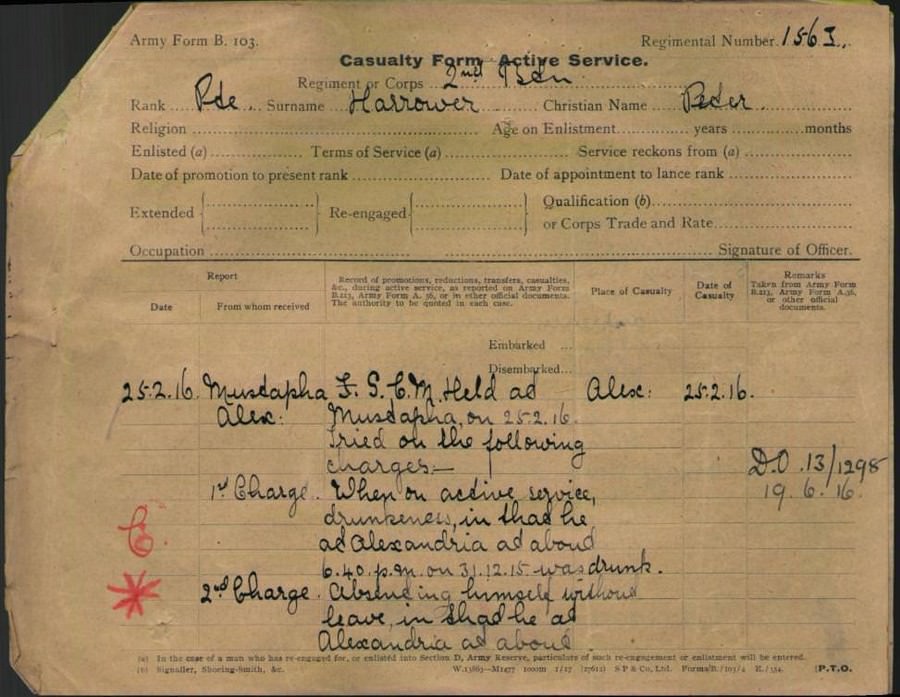 Army Form B. 103.
Regimental Number. 1563.
Casualty Form Active Service.
Regiment or Corps 2nd Bdn
Rank Pde. Surname Harrower Christian Name Peder.
Religion Age on Enlistment years months
Enlisted (a) Terms of Service (a) Service reckons from (a)
Date of promotion to present rank Date of appointment to lance rank
Extended Re-engaged Qualification (b)
or Corps Trade and Rate
Occupation Signature of Officer.
Report
Date From whom received
Record of promotions, reductions, transfers, casualties,
&c., during active service, as reported on Army Form
B.213, Army Form A. 36, or in other official documents.
The authority to be quoted in each case.
Place of Casualty
Date of
Casualty
Remarks
Taken from Army Form
B.213, Army Form A.36,
or other official
documents.
Embarked ...
Disembarked...
25.2.16. Mustapha F. G. C. M. Held at Alex: 25.2.16.
Alex: Mustapha, on 25.2.16.
Tried on the following
charges:—
D.O. 13/1298
19.6.16.
1st Charge. When on active service,
drunkeness, in that he
at Alexandria at about
6.40. p.m. on 31.12.15 was drunk.
2nd Charge. Absenting himself without
leave, in that he at
Alexandria at about
C.
(a) In the case of a man who has re-engaged for, or enlisted into Section D, Army Reserve, particulars of such re-engagement or enlistment will be entered.
(b) Signaller, Shoeing-Smith, &c. 1000m 1/17 S P & Co, Ltd. [P.T.O.